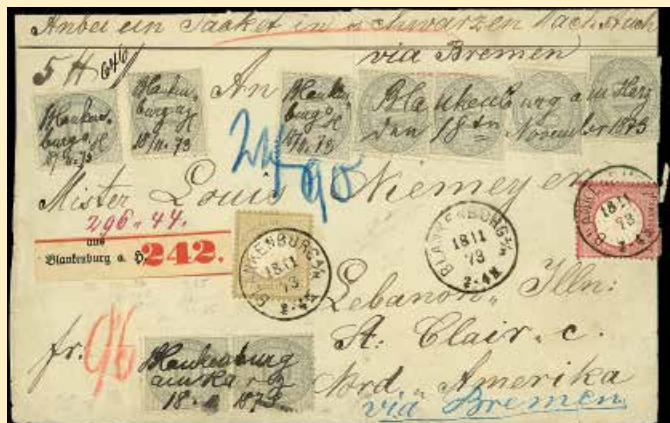 Anbei ein Packet in schwarzen Wachstuch
via Bremen
5 H 646
An
Blanken-
burg a/H
18/11. 73
Blanken-
burg a/H
18/11. 73
Blanken-
burg a/H
18/11. 73
Blankenburg am Harz
den 18ten November 1873
24
90
Mister Louis Niemeyer
296. 44.
aus
Blankenburg a. H. 242.
BLANKENBURG a/H
18 11
73
2-4N
BLANKENBURG a/H
18 11
73
2-4N
BLANKENBURG
18 11
73
2-4N
Lebanon, Illn:
St. Clair. c.
fr. 96
Blankenburg
am Harz
18. 11 1873.
Nord-Amerika
via Bremen